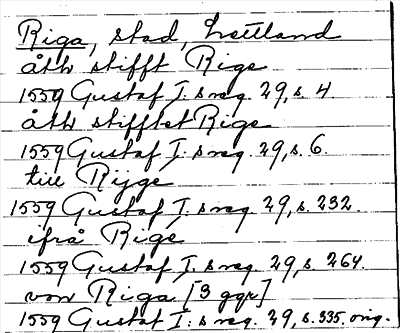 Riga, stad, Lettland
åth stifft Rige
1559 Gustaf I:s reg. 29, s. 4
åth stifftet Rige
1559 Gustaf I:s reg. 29, s. 6.
till Rijge
1559 Gustaf I:s reg. 29, s. 232.
ifrå Rige
1559 Gustaf I:s reg. 29, s. 264.
von Riga [3 ggr]
1559 Gustaf I:s reg. 29, s. 335. orig.